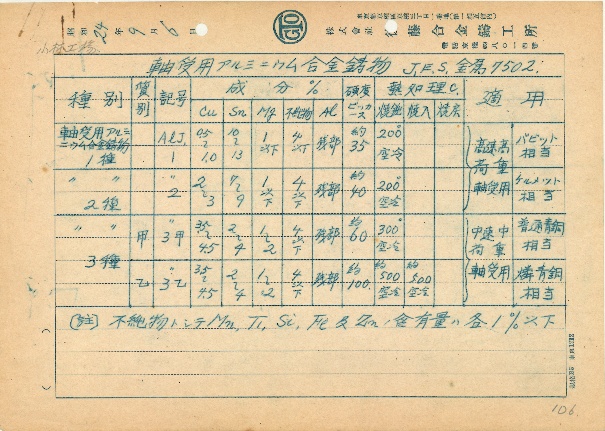 昭和24年9月6日
株式会社 藤合金鋳工所
小林工場
軸受用アルミニウム合金鋳物 J.E.S. 金属7502.
種別 質別 記号 成分% 硬度ビッカース 熱処理C. 適用
Cu Sn Mg 不純物 Al 焼鈍 焼入 焼戻
軸受用アルミニウム合金鋳物1種 AlJ,1 0.5~1.0 10~13 1以下 4以下 残部 約35 200°空冷 高速高荷重軸受用 バビット相当
〃 〃 2種 〃2 2~3 7~9 1以下 4以下 残部 約40 200°空冷 ケルメット相当
〃 〃 3種 甲 〃3甲 3.5~4.5 2~4 1~2 4以下 残部 約60 300°空冷 中速中荷重軸受用 普通青銅相当
乙 〃3乙 3.5~4.5 2~4 1~2 4以下 残部 約100 約500空冷 約500空冷 燐青銅相当
(註) 不純物トシテMn, Ti, Si, Fe及Znノ含有量ハ各1%以下
106.